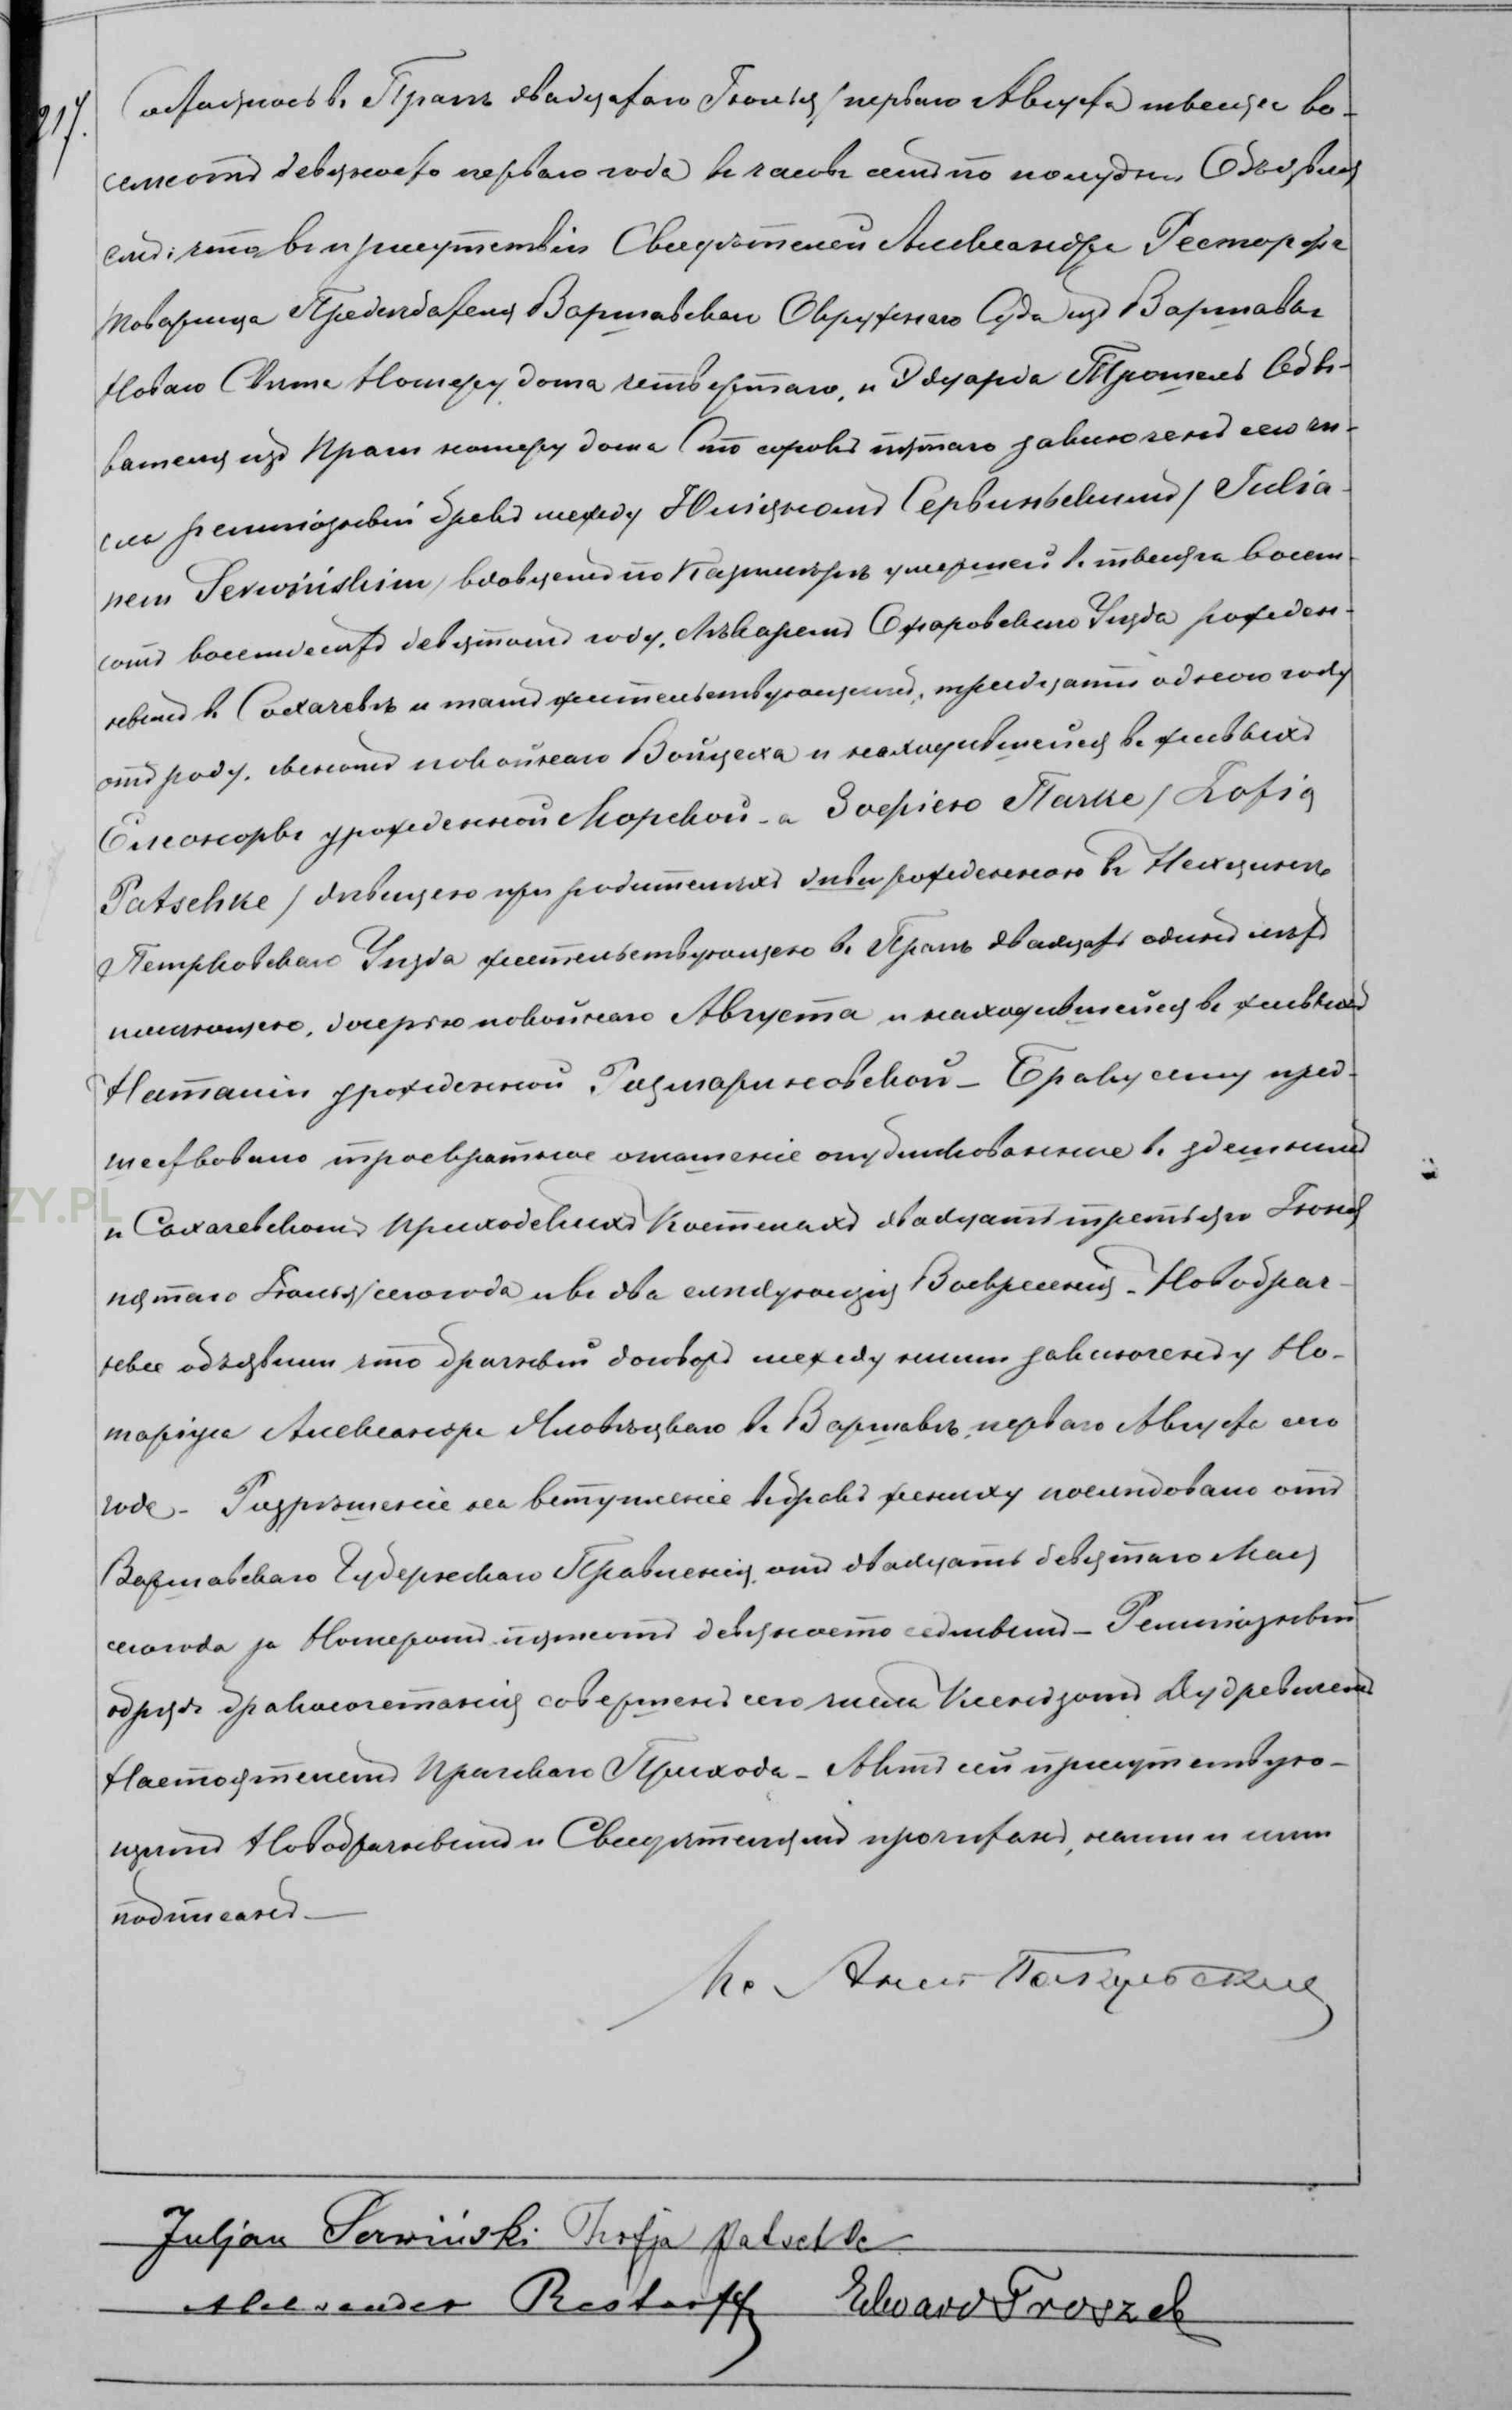 217.
Состоялось въ Прагѣ двадцатаго Іюля / перваго Августа тысяча во-
семсотъ девяносто перваго года въ часовъ семь по полудни Объявля-
емъ, что въ присутствіи Свидѣтелей Александра Ресторфа
товарища Предсѣдателя Варшавскаго Окружнаго Суда изъ Варшавы
Новаго Свѣта Номеру дома четвертаго, и Эдуарда Трошель
вателя изъ Праги номеру дома Сто сорокъ пятаго заключенъ сего чи-
сла религіозный бракъ между Юліяномъ Сервиньскимъ / Julia-
nem Serwińskim / вдовцемъ по Казимирѣ умершей въ тысяча восем-
сотъ восемдесятъ девятомъ году, Лѣкаремъ Сохачевскаго Уѣзда рожден-
нымъ въ Сохачевѣ и тамъ жительствующимъ, тридцати одного году
отъ роду, сыномъ покойнаго Войцеха и находившейся въ живыхъ
Елеоноры урожденной Морской - а Зофіею Пачке / Zofią
Patschke / дѣвицею при родителяхъ рожденною въ Нехцицѣ
Петрковскаго Уѣзда жительствующею въ Прагѣ двадцать одинъ лѣтъ
имѣющею, дочерью покойнаго Августа и находившейся въ живыхъ
Наталіи урожденной Размариновской - Браку сему пред-
шествовало троекратное оглашеніе опубликованное въ здѣшнемъ
и Сохачевскомъ приходскихъ Костелахъ двадцать третьяго Іюня
пятаго Іюля / сего года и въ два слѣдующія Воскресенія - Новобрач-
ные объявили что брачный договоръ между ними заключенъ у Но-
таріуса Александра въ Варшавѣ перваго Августа сего
года - Разрѣшеніе на вступленіе въ бракъ жениху послѣдовало отъ
Варшавскаго Губернскаго Правленія отъ двадцать девятаго Мая
сего года за Номеромъ пятьсотъ девяносто седмымъ - Религіозный
обрядъ бракосочетанія совершенъ сего числа Ксендзомъ Дудревичемъ
Настоятелемъ Пражскаго Прихода - Актъ сей присутствую-
щимъ Новобрачнымъ и Свидѣтелямъ прочитанъ, нами и ими
подписанъ —
Кс
Juljan Serwiński Zofja Patschke
Aleksander Restorff Edward Troszel
ZY.PL